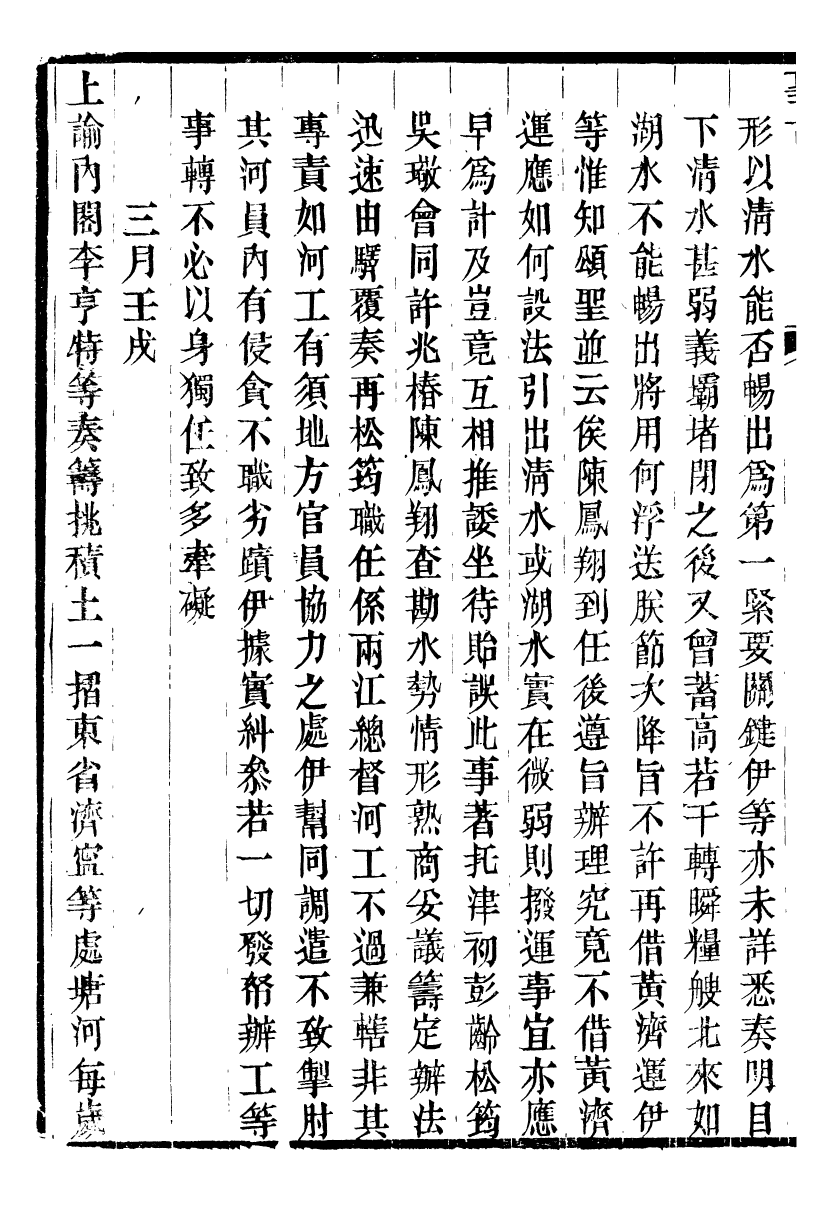 形以清水能否暢出爲第一緊要關鍵伊等亦未詳悉奏明目
下清水甚弱義壩堵閉之後又曾蓄高若干轉瞬糧艘北來如
湖水不能暢出將用何浮送朕節次降旨不許再借黃濟運伊
等惟知頌聖並云俟陳鳳翔到任後遵旨辦理究竟不借黃濟
運應如何設法引出清水或湖水實在微弱則撥運事宜亦應
早爲計及豈竟互相推諉坐待貽誤此事著托津初彭齡松筠
吳璥會同許兆椿陳鳳翔查勘水勢情形熟商妥議籌定辦法
迅速由驛覆奏再松筠職任係兩江總督河工不過兼轄非其
專責如河工有須地方官員協力之處伊幫同調遣不致掣肘
其河員內有侵貪不職劣蹟伊據實糾叅若一切發帑辦工等
事轉不必以身獨任致多牽礙
三月壬戌
上諭內閣李亨特等奏籌挑積土一摺東省濟寧等處塘河每歲